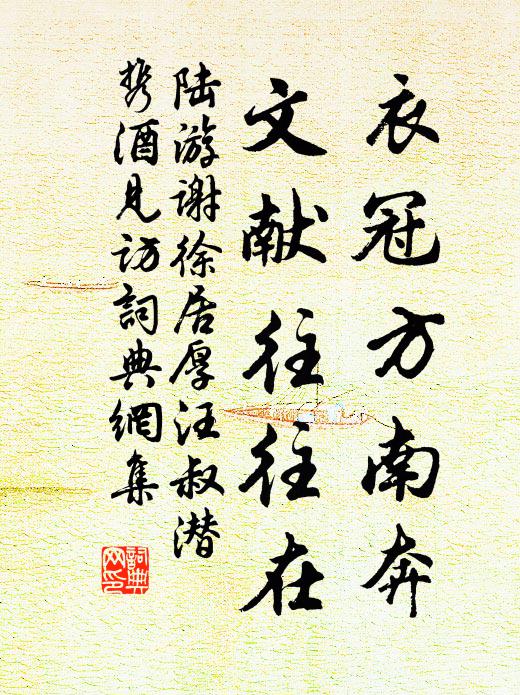 衣冠方南奔
文献往往在
陆游谢徐居厚汪叔潜
携酒见访詞典網集
詞典
网印